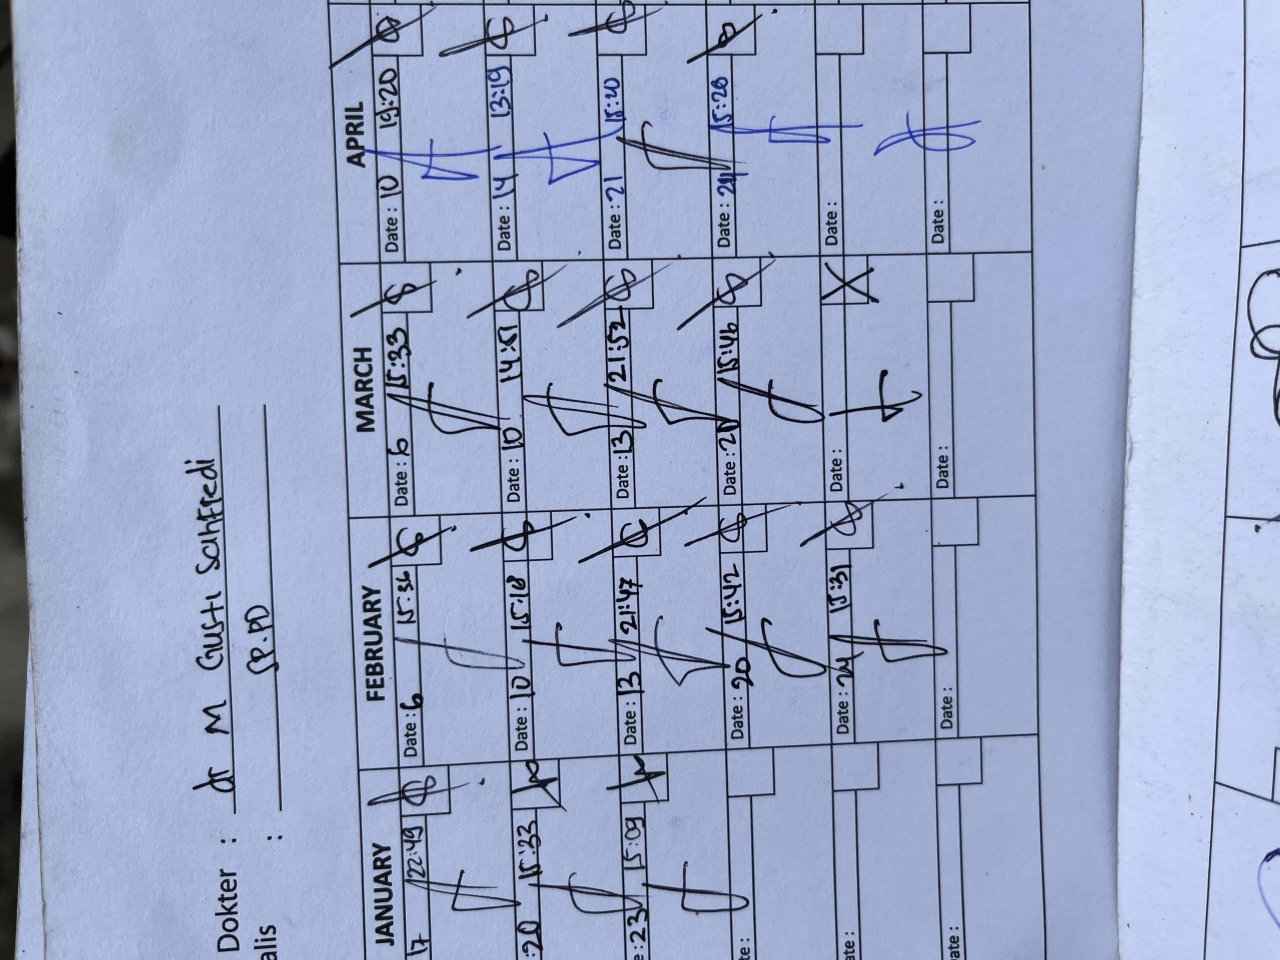 Dokter : dr M Gusti Sahfredi
alis : SP.PD
JANUARY FEBRUARY MARCH APRIL
17 22:49
Date : 6 15:36
Date : 6 15:33
Date : 10 19:20
: 20 15:33
Date : 10 15:18
Date : 10 14:51
Date : 14 13:19
e : 23 15:09
Date : 13 21:47
Date : 13 21:52
Date : 21 15:20
te :
Date : 20 15:42
Date : 15:46
Date : 15:28
ate :
Date : 24 15:31
Date : X
Date :
ate :
Date :
Date :
Date :